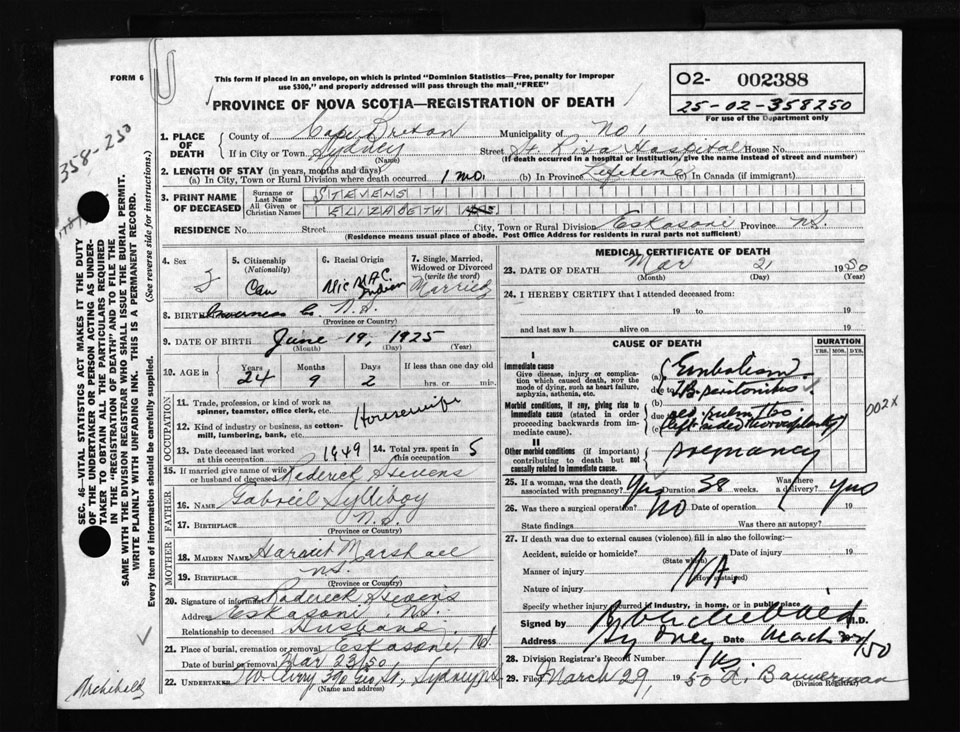 FORM 6
This form if placed in an envelope, on which is printed "Dominion Statistics—Free, penalty for improper
use $300," and properly addressed will pass through the mail "FREE"
O2- 002388
25-02-358250
For use of the Department only
PROVINCE OF NOVA SCOTIA—REGISTRATION OF DEATH
358-250
1. PLACE OF DEATH
County of Cape Breton Municipality of No 1
If in City or Town Sydney (Name) Street St. Rita Hospital House No.
(If death occurred in a hospital or institution, give the name instead of street and number)
2. LENGTH OF STAY (in years, months and days)
(a) In City, Town or Rural Division where death occurred 1 mo. (b) In Province Lifetime (c) In Canada (if immigrant)
3. PRINT NAME OF DECEASED
Surname or Last Name STEVENS
All Given or Christian Names ELIZABETH
RESIDENCE No. Street City, Town or Rural Division Eskasoni Province N.S.
(Residence means usual place of abode. Post Office Address for residents in rural parts not sufficient)
4. Sex F
5. Citizenship (Nationality) Can
6. Racial Origin MicMAC Indian
7. Single, Married, Widowed or Divorced (write the word) Married
8. BIRTH Inverness Co. N.S.
(Province or Country)
9. DATE OF BIRTH June 19, 1925
(Month) (Day) (Year)
10. AGE IN Years 24 Months 9 Days 2 If less than one day old hrs. or min.
OCCUPATION
11. Trade, profession, or kind of work as spinner, teamster, office clerk, etc. Housewife
12. Kind of industry or business, as cotton-mill, lumbering, bank, etc.
13. Date deceased last worked at this occupation 1949 14. Total yrs. spent in this occupation 5
15. If married give name of wife or husband of deceased Roderick Stevens
FATHER
16. Name Gabriel Sylliboy
17. Birthplace N.S.
(Province or Country)
MOTHER
18. Maiden Name Harriet Marshall
19. Birthplace N.S.
(Province or Country)
20. Signature of informant Roderick Stevens
Address Eskasoni N.S.
Relationship to deceased Husband
21. Place of burial, cremation or removal Eskasoni, N.S.
Date of burial or removal Mar 23/50
22. UNDERTAKER 390 Geo St, Sydney N.S.
(Name and address)
MEDICAL CERTIFICATE OF DEATH
23. DATE OF DEATH Mar 21 1950
(Month) (Day) (Year)
24. I HEREBY CERTIFY that I attended deceased from:
19 to 19
and last saw h alive on 19
CAUSE OF DEATH
DURATION
YRS. MOS. DYS.
I
Immediate cause
Give disease, injury or complication which caused death, NOT the mode of dying, such as heart failure, asphyxia, asthenia, etc.
(a) Embolism.
due to TB peritonitis
Morbid conditions, if any, giving rise to immediate cause (stated in order proceeding backwards from immediate cause).
(b) old pulm tbc
due to
(c) (left sided thoracoplasty)
002X
II
Other morbid conditions (if important) contributing to death but not causally related to immediate cause.
pregnancy
25. If a woman, was the death associated with pregnancy? Yes Duration 38 weeks. Was there a delivery? Yes
26. Was there a surgical operation? No Date of operation 19
State findings Was there an autopsy?
27. If death was due to external causes (violence), fill in also the following:—
Accident, suicide or homicide? Date of injury 19
(State which)
Manner of injury N.A.
(How sustained)
Nature of injury
Specify whether injury occurred in industry, in home, or in public place
Signed by M.D.
Address Sydney Date March /50
28. Division Registrar's Record Number
29. Filed March 29, 1950 A. Bannerman
(Division Registrar)
SEC. 46—VITAL STATISTICS ACT MAKES IT THE DUTY
OF THE UNDERTAKER OR PERSON ACTING AS UNDER-
TAKER TO OBTAIN ALL THE PARTICULARS REQUIRED
IN THE "REGISTRATION OF DEATH" AND TO FILE THE
SAME WITH THE DIVISION REGISTRAR WHO SHALL ISSUE THE BURIAL PERMIT.
WRITE PLAINLY WITH UNFADING INK. THIS IS A PERMANENT RECORD.
Every item of information should be carefully supplied. (See reverse side for instructions.)
Archibald